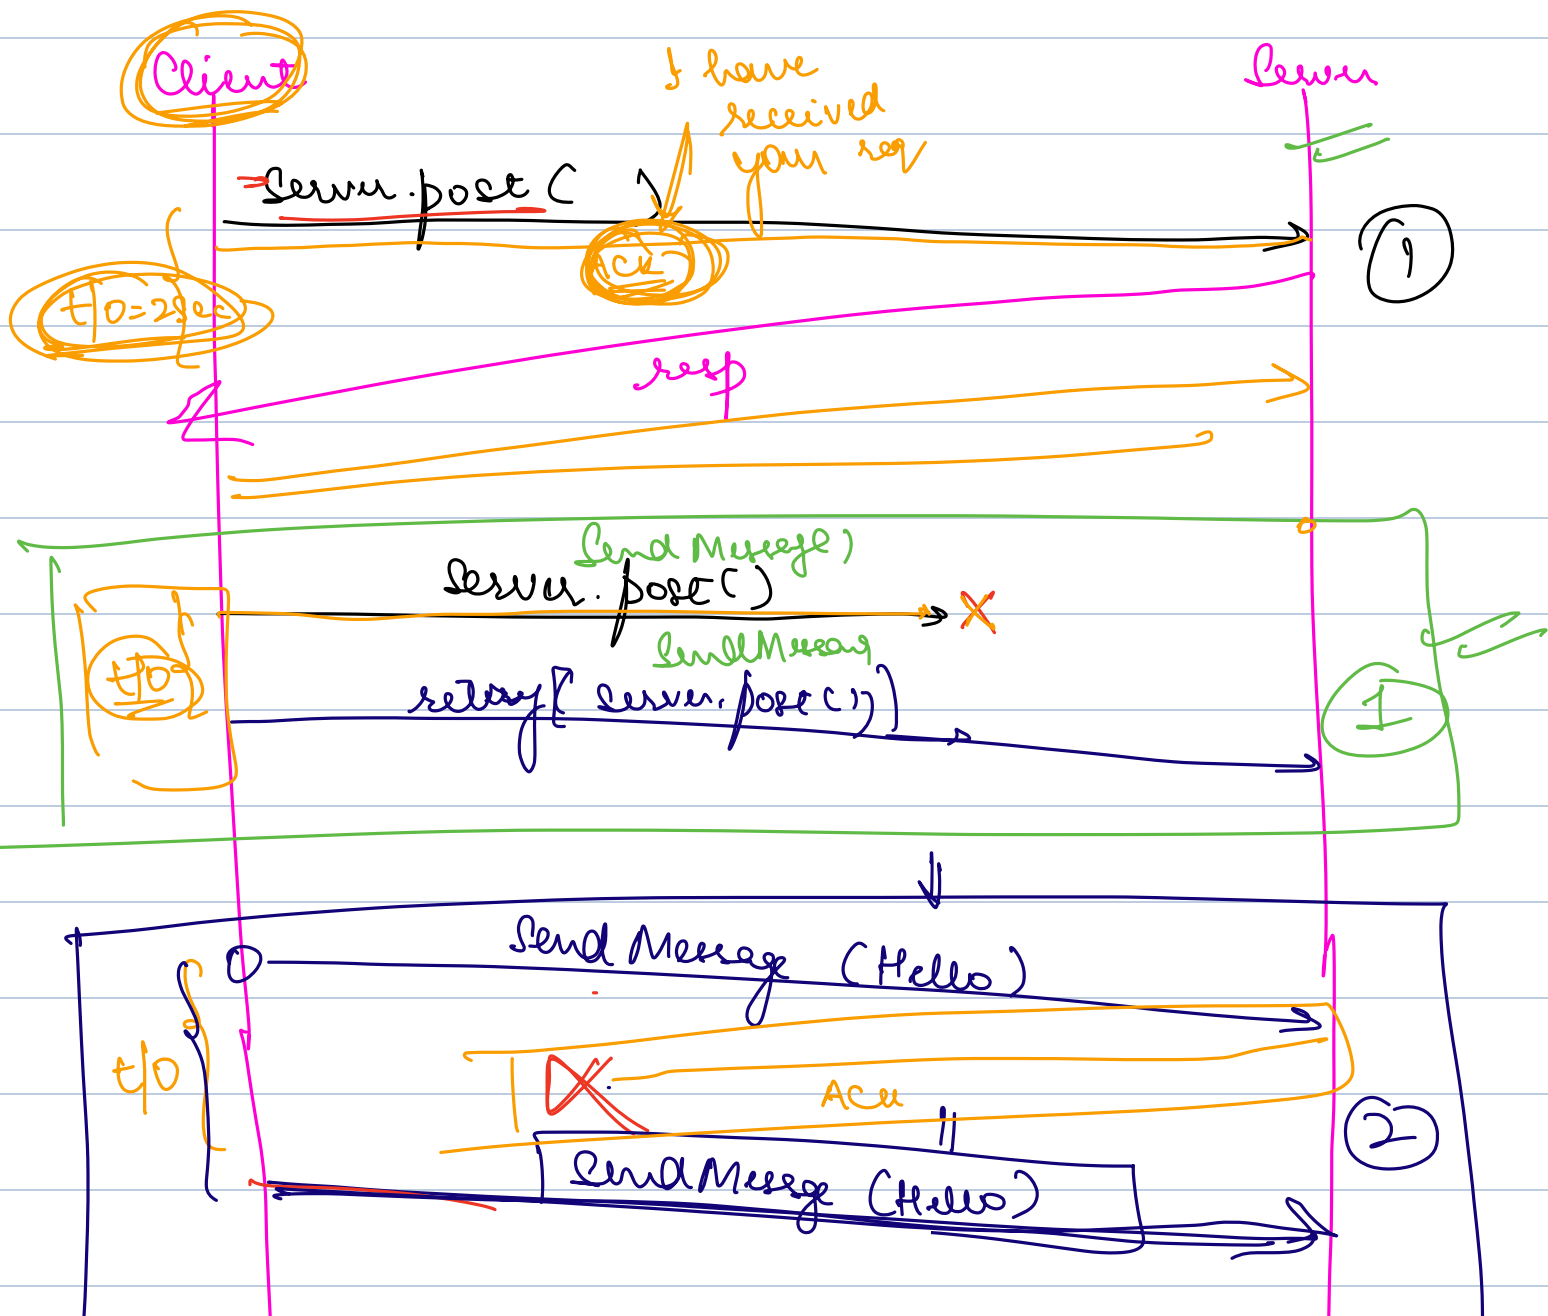 Client
Server
I have
received
your req
server.post( )
ACK
t/o=2sec
1
resp
SendMessage)
server.post()
t/o
SendMessag
retry[ server.post()) ]
1
SendMessage (Hello)
t/o
ACK
2
SendMessage (Hello)